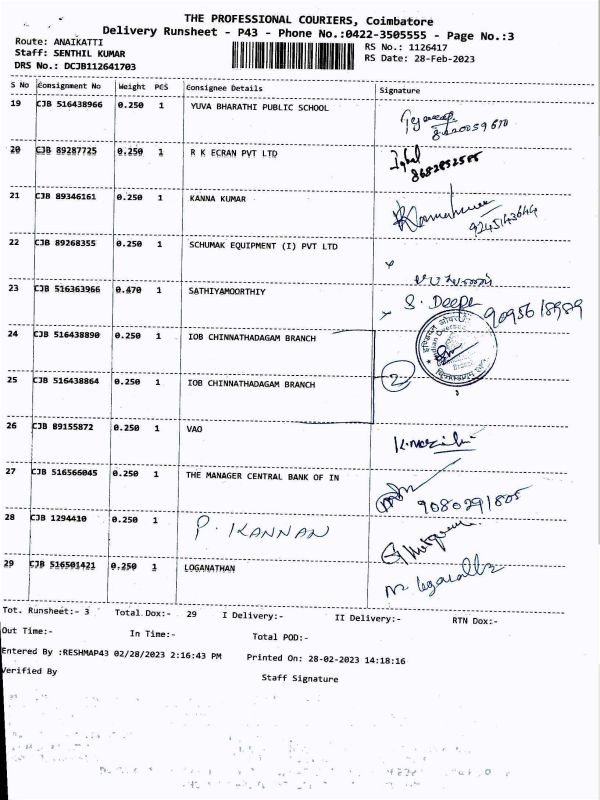 THE PROFESSIONAL COURIERS, Coimbatore
Delivery Runsheet - P43 - Phone No.:0422-3505555 - Page No.:3
Route: ANAIKATTI RS No.: 1126417
Staff: SENTHIL KUMAR RS Date: 28-Feb-2023
DRS No.: DCJB112641703
S No Consignment No Weight PCS Consignee Details Signature
19 CJB 516438966 0.250 1 YUVA BHARATHI PUBLIC SCHOOL
20 CJB 89287725 0.250 1 R K ECRAN PVT LTD Iqbal
8682852585
21 CJB 89346161 0.250 1 KANNA KUMAR
9245143644
22 CJB 89268355 0.250 1 SCHUMAK EQUIPMENT (I) PVT LTD
23 CJB 516363966 0.470 1 SATHIYAMOORTHIY S. Deepa 9095618989
24 CJB 516438890 0.250 1 IOB CHINNATHADAGAM BRANCH
25 CJB 516438864 0.250 1 IOB CHINNATHADAGAM BRANCH 2
26 CJB 89155872 0.250 1 VAO
27 CJB 516566045 0.250 1 THE MANAGER CENTRAL BANK OF IN
9080291805
28 CJB 1294410 0.250 1 P. KANNAN
29 CJB 516501421 0.250 1 LOGANATHAN
Tot. Runsheet:- 3 Total Dox:- 29 I Delivery:- II Delivery:- RTN Dox:-
Out Time:- In Time:- Total POD:-
Entered By :RESHMAP43 02/28/2023 2:16:43 PM Printed On: 28-02-2023 14:18:16
Verified By Staff Signature